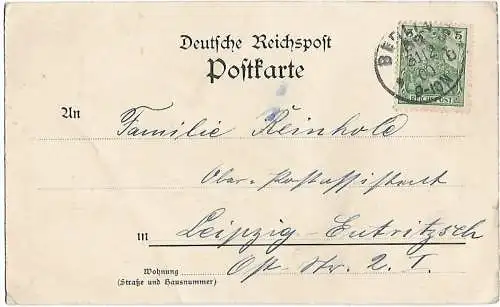 Deutsche Reichspost
Postkarte
BERLIN
31 12
00
9-10N
REICHSPOST
An Familie Reinhold
Ober-Postassistent
in Leipzig-Eutritzsch
Wohnung
(Straße und Hausnummer)
Ost-Str. 2. I.